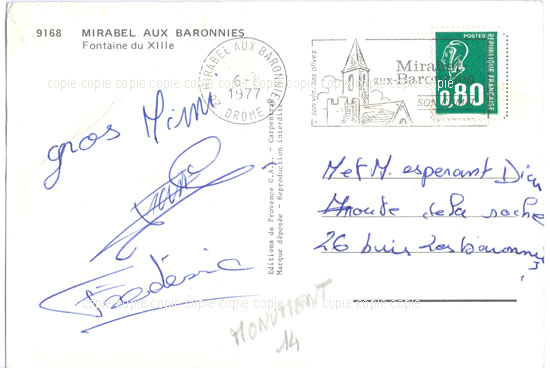 9168 MIRABEL AUX BARONNIES
Fontaine du XIIIe
MIRABEL AUX BARONNIES
1977
DROME
son vin, ses olives
Mirabel
aux-Baronnies
SON
POSTES
0,80
REPUBLIQUE FRANÇAISE
gros
Frédéric
Editions de Provence G.A.J. - Carpentras
Marque déposée - Reproduction interdite
M et M. esperant Dieu
route de la roche
26 buis les baronnies
MONUMENT
14
copie copie copie copie copie copie copie copie copie copie copie copie